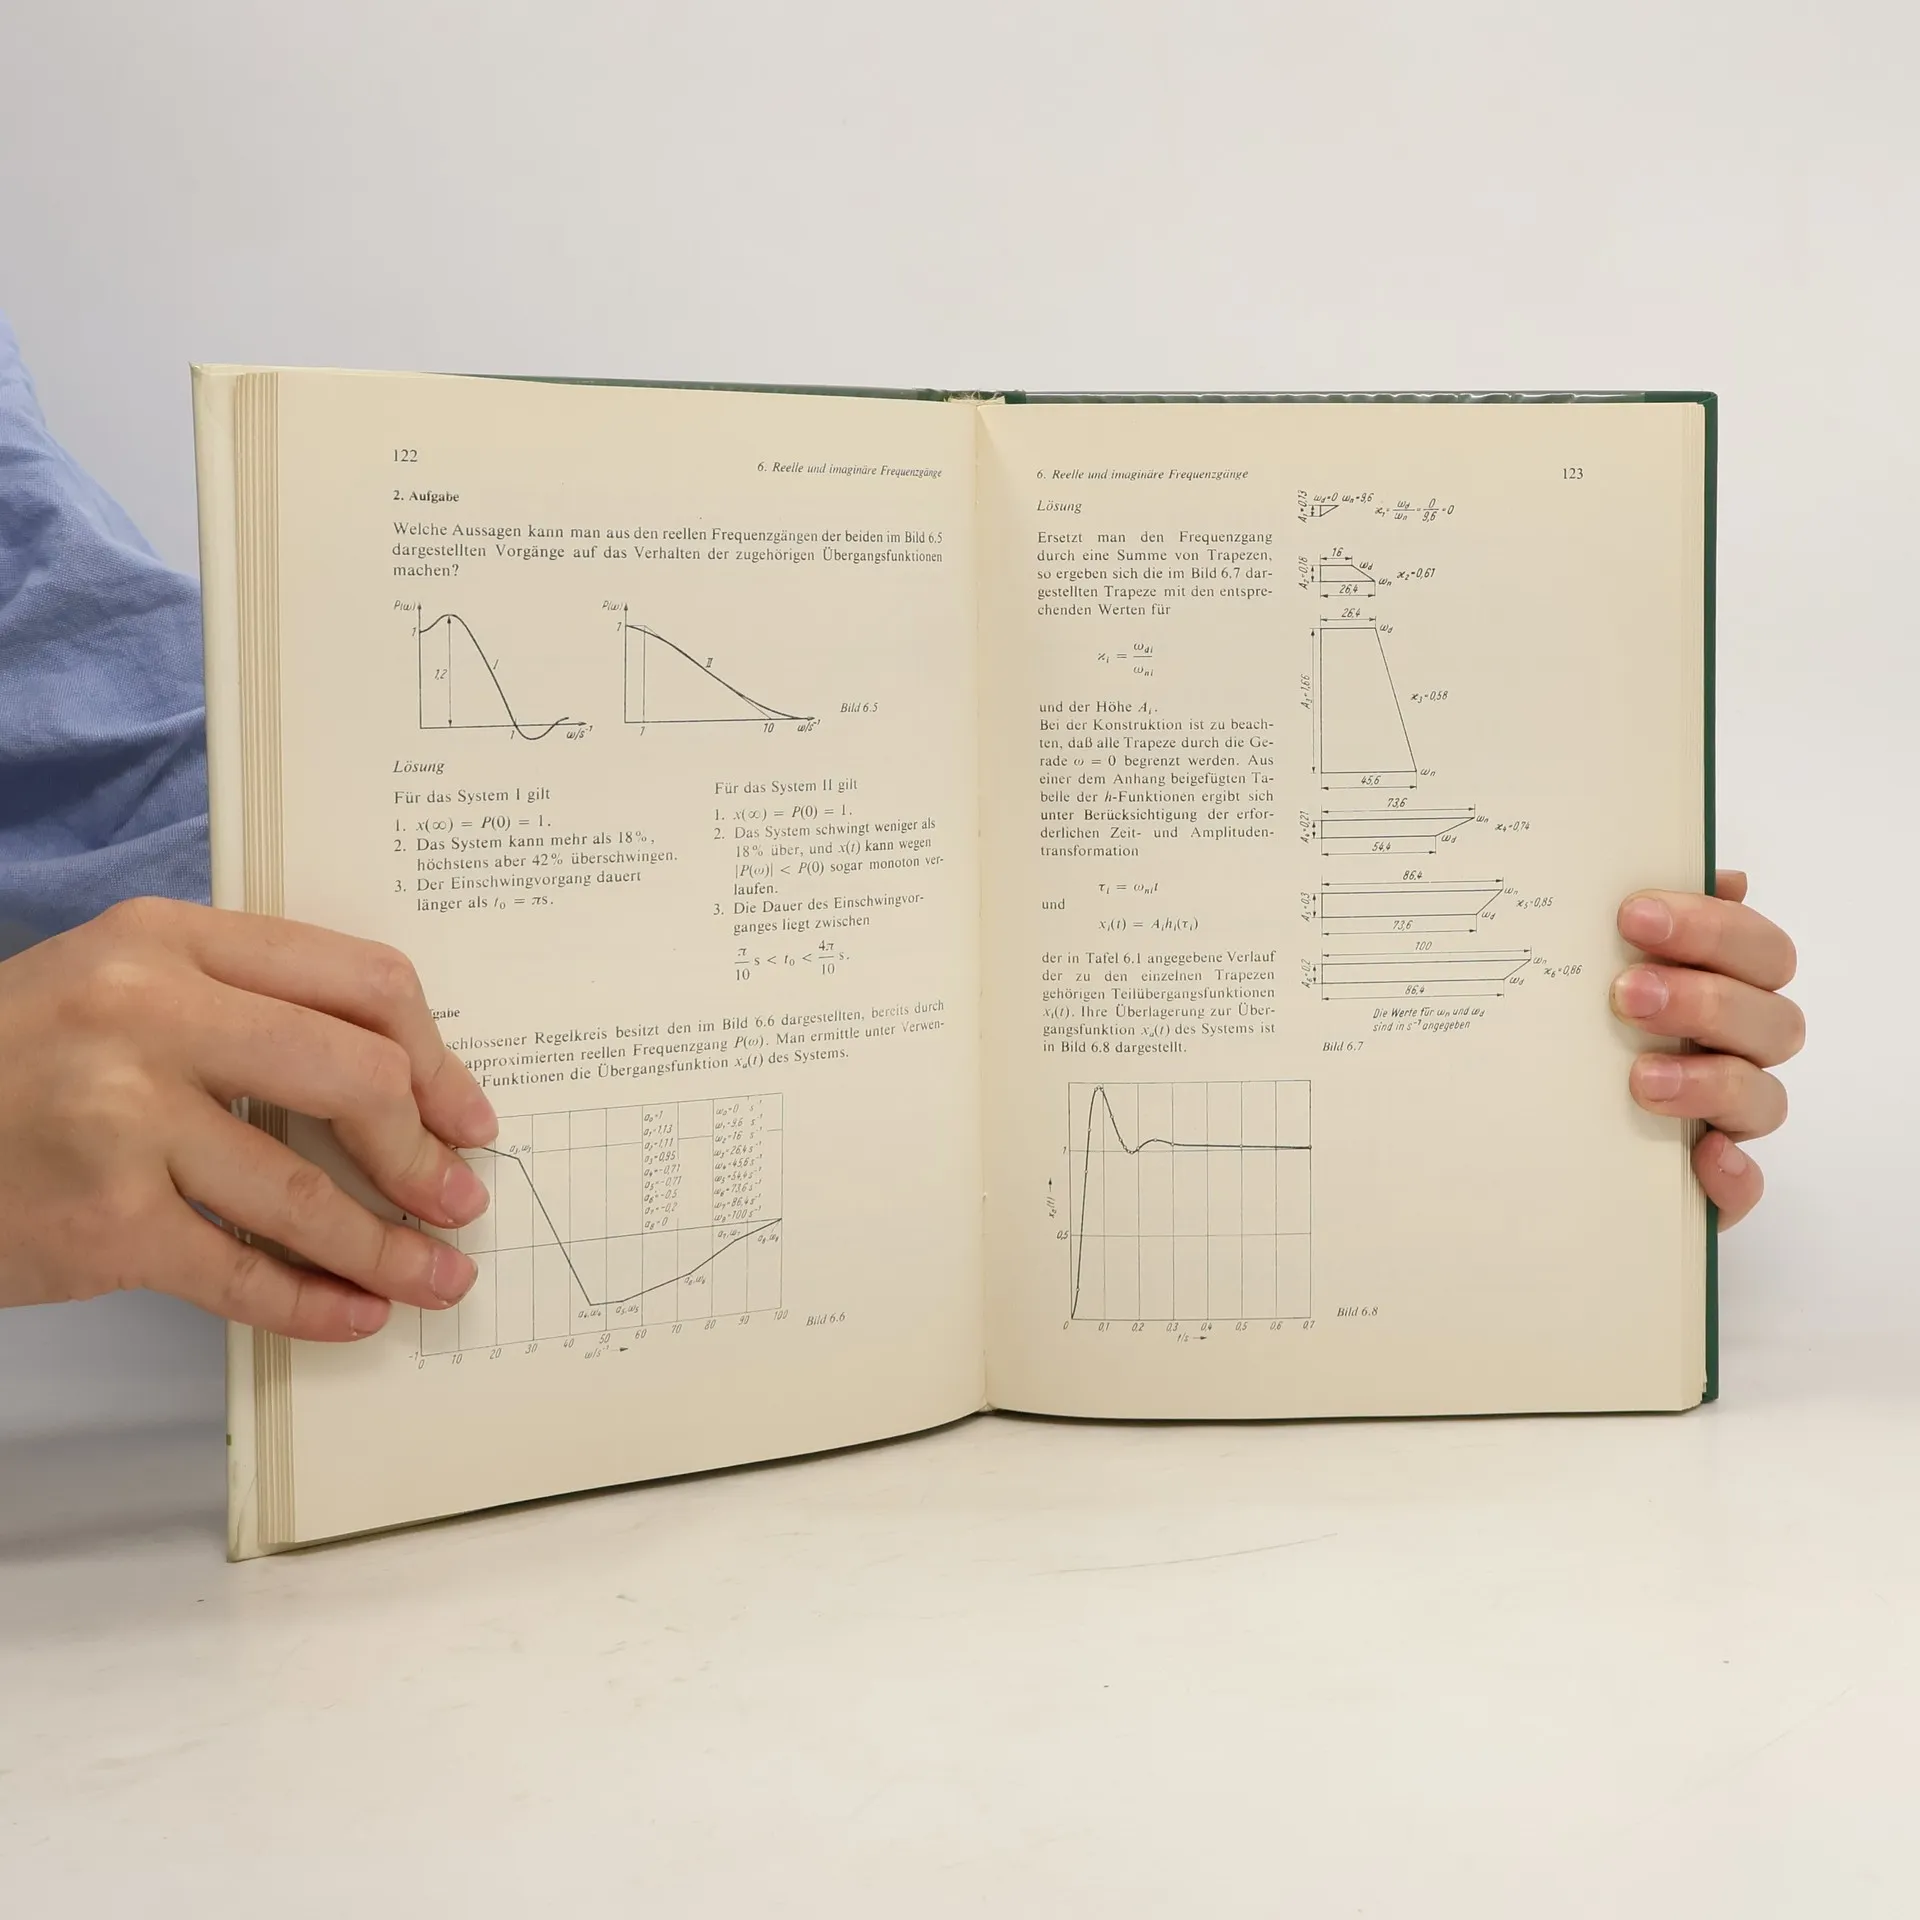 122
6. Reelle und imaginäre Frequenzgänge
2. Aufgabe
Welche Aussagen kann man aus den reellen Frequenzgängen der beiden im Bild 6.5
dargestellten Vorgänge auf das Verhalten der zugehörigen Übergangsfunktionen
machen?
P(ω)
1
1,2
I
1
ω/s⁻¹
P(ω)
1
II
1
10
ω/s⁻¹
Bild 6.5
Lösung
Für das System I gilt
1. x(∞) = P(0) = 1.
2. Das System kann mehr als 18%,
höchstens aber 42% überschwingen.
3. Der Einschwingvorgang dauert
länger als t₀ = πs.
Für das System II gilt
1. x(∞) = P(0) = 1.
2. Das System schwingt weniger als
18% über, und x(t) kann wegen
|P(ω)| < P(0) sogar monoton ver-
laufen.
3. Die Dauer des Einschwingvor-
ganges liegt zwischen
π/10 s < t₀ < 4π/10 s.
gabe
schlossener Regelkreis besitzt den im Bild 6.6 dargestellten, bereits durch
approximierten reellen Frequenzgang P(ω). Man ermittle unter Verwen-
-Funktionen die Übergangsfunktion xₐ(t) des Systems.
a₀=1 ω₀=0 s⁻¹
a₁=1,13 ω₁=9,6 s⁻¹
a₂=1,11 ω₂=16 s⁻¹
a₃=0,95 ω₃=26,4 s⁻¹
a₄=-0,71 ω₄=45,6 s⁻¹
a₅=-0,71 ω₅=54,4 s⁻¹
a₆=-0,5 ω₆=73,6 s⁻¹
a₇=-0,2 ω₇=86,4 s⁻¹
a₈=0 ω₈=100 s⁻¹
a₃,ω₃
a₇,ω₇
a₈,ω₈
a₆,ω₆
a₄,ω₄ a₅,ω₅
-1
0 10 20 30 40 50 60 70 80 90 100
ω/s⁻¹
Bild 6.6
6. Reelle und imaginäre Frequenzgänge
123
Lösung
Ersetzt man den Frequenzgang
durch eine Summe von Trapezen,
so ergeben sich die im Bild 6.7 dar-
gestellten Trapeze mit den entspre-
chenden Werten für
ϰᵢ = ω_di/ω_ni
und der Höhe Aᵢ.
Bei der Konstruktion ist zu beach-
ten, daß alle Trapeze durch die Ge-
rade ω = 0 begrenzt werden. Aus
einer dem Anhang beigefügten Ta-
belle der h-Funktionen ergibt sich
unter Berücksichtigung der erfor-
derlichen Zeit- und Amplituden-
transformation
τᵢ = ω_ni t
und
xᵢ(t) = Aᵢhᵢ(τᵢ)
der in Tafel 6.1 angegebene Verlauf
der zu den einzelnen Trapezen
gehörigen Teilübergangsfunktionen
xᵢ(t). Ihre Überlagerung zur Über-
gangsfunktion xₐ(t) des Systems ist
in Bild 6.8 dargestellt.
A₁=0,13 ω_d=0 ω_n=9,6 ϰ₁=ω_d/ω_n=0/9,6=0
16
A₂=0,16 ω_d ω_n ϰ₂=0,61
26,4
26,4
ω_d
A₃=1,66 ϰ₃=0,58
ω_n
45,6
73,6
A₄=0,21 ω_n ω_d ϰ₄=0,74
54,4
86,4
A₅=0,3 ω_n ω_d ϰ₅=0,85
73,6
100
A₆=0,2 ω_n ω_d ϰ₆=0,86
86,4
Die Werte für ω_n und ω_d
sind in s⁻¹ angegeben
Bild 6.7
1
xₐ(t)
0,5
0 0,1 0,2 0,3 0,4 0,5 0,6 0,7
t/s
Bild 6.8